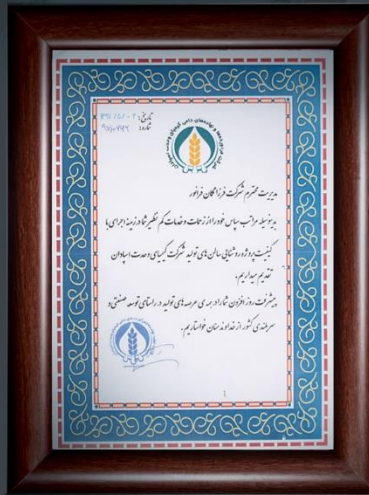 تاریخ: ۱۳۹۱/۵/۰۲
شماره:
مدیریت محترم شرکت فرزانگان فرانور
بدینوسیله مراتب سپاس خود را از زحمات و خدمات کم نظیر شما در زمینه اجرای با
کیفیت پروژه روشنایی سالن های تولید شرکت کیمیای وحدت اسپادان
تقدیم میداریم.
پیشرفت روز افزون شما را در همه ی عرصه های تولید در راستای توسعه صنعتی و
سربلندی کشور از خداوند منان خواستاریم.